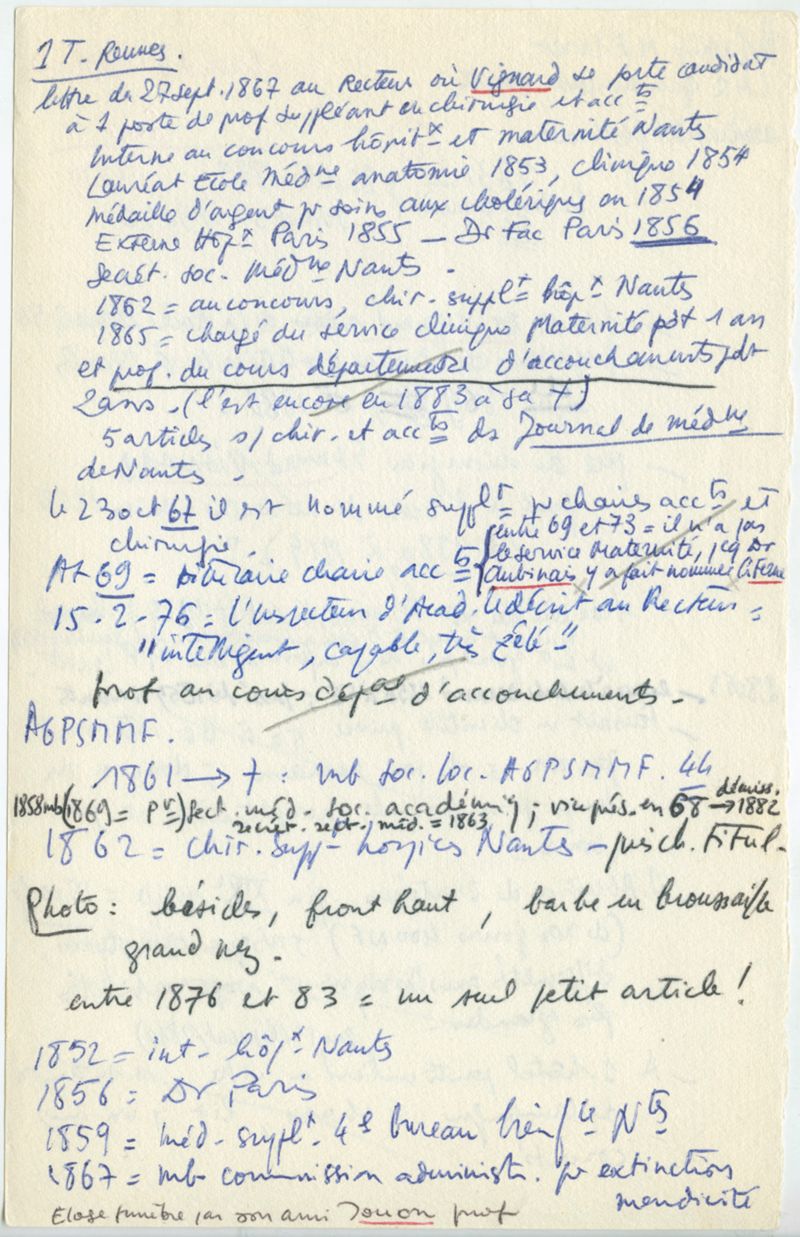 1 T. Rennes.
lettre du 27 sept. 1867 au Recteur où Vignard se porte candidat
à 1 poste de prof suppléant en chirurgie et acc ts
Interne au concours hôpit x et maternité Nantes
Lauréat Ecole Méd ne anatomie 1853, clinique 1854
médaille d'argent pr soins aux cholériques en 1854
Externe Hôp x Paris 1855 — Dr Fac Paris 1856
Secrét. soc. méd ne Nantes.
1862 = au concours, chir. suppl t hôp x Nantes
1865 = chargé du service clinique Maternité pdt 1 an
et prof. du cours départemental d'accouchements pdt
2 ans. (l'est encore en 1883 à sa †)
5 articles s/ chir. et acc ts ds Journal de méd ne
de Nantes.
le 23 oct 67 il est nommé suppl t pr chaires acc ts et
chirurgie.
entre 69 et 73 = il n'a pas
le service Maternité, pcq Dr
Aubinais y a fait nommer Citerne
At 69 = titulaire chaire acc ts
15-2-76 = l'Inspecteur d'Acad. le décrit au Recteur =
"intelligent, capable, très zélé"
prof au cours dép al d'accouchements.
AGPSMMF.
1861 → † : mb soc. loc. AGPSMMF. 44
1858 mb (1869 = Pr) sect. méd. soc. académiq ; vice prés. en 68 démiss. → 1882
secrét. sect. méd. = 1863
1862 = chir. supp hospices Nantes — puis ch. titul.
Photo : bésicles, front haut, barbe en broussaille
grand nez.
entre 1876 et 83 = un seul petit article !
1852 = int. hôp x Nantes
1856 = Dr Paris
1859 = méd. suppl t 4e bureau bienf ce N tes
1867 = mb commission administr. pr extinction
mendicité
Eloge funèbre par son ami Jouon prof